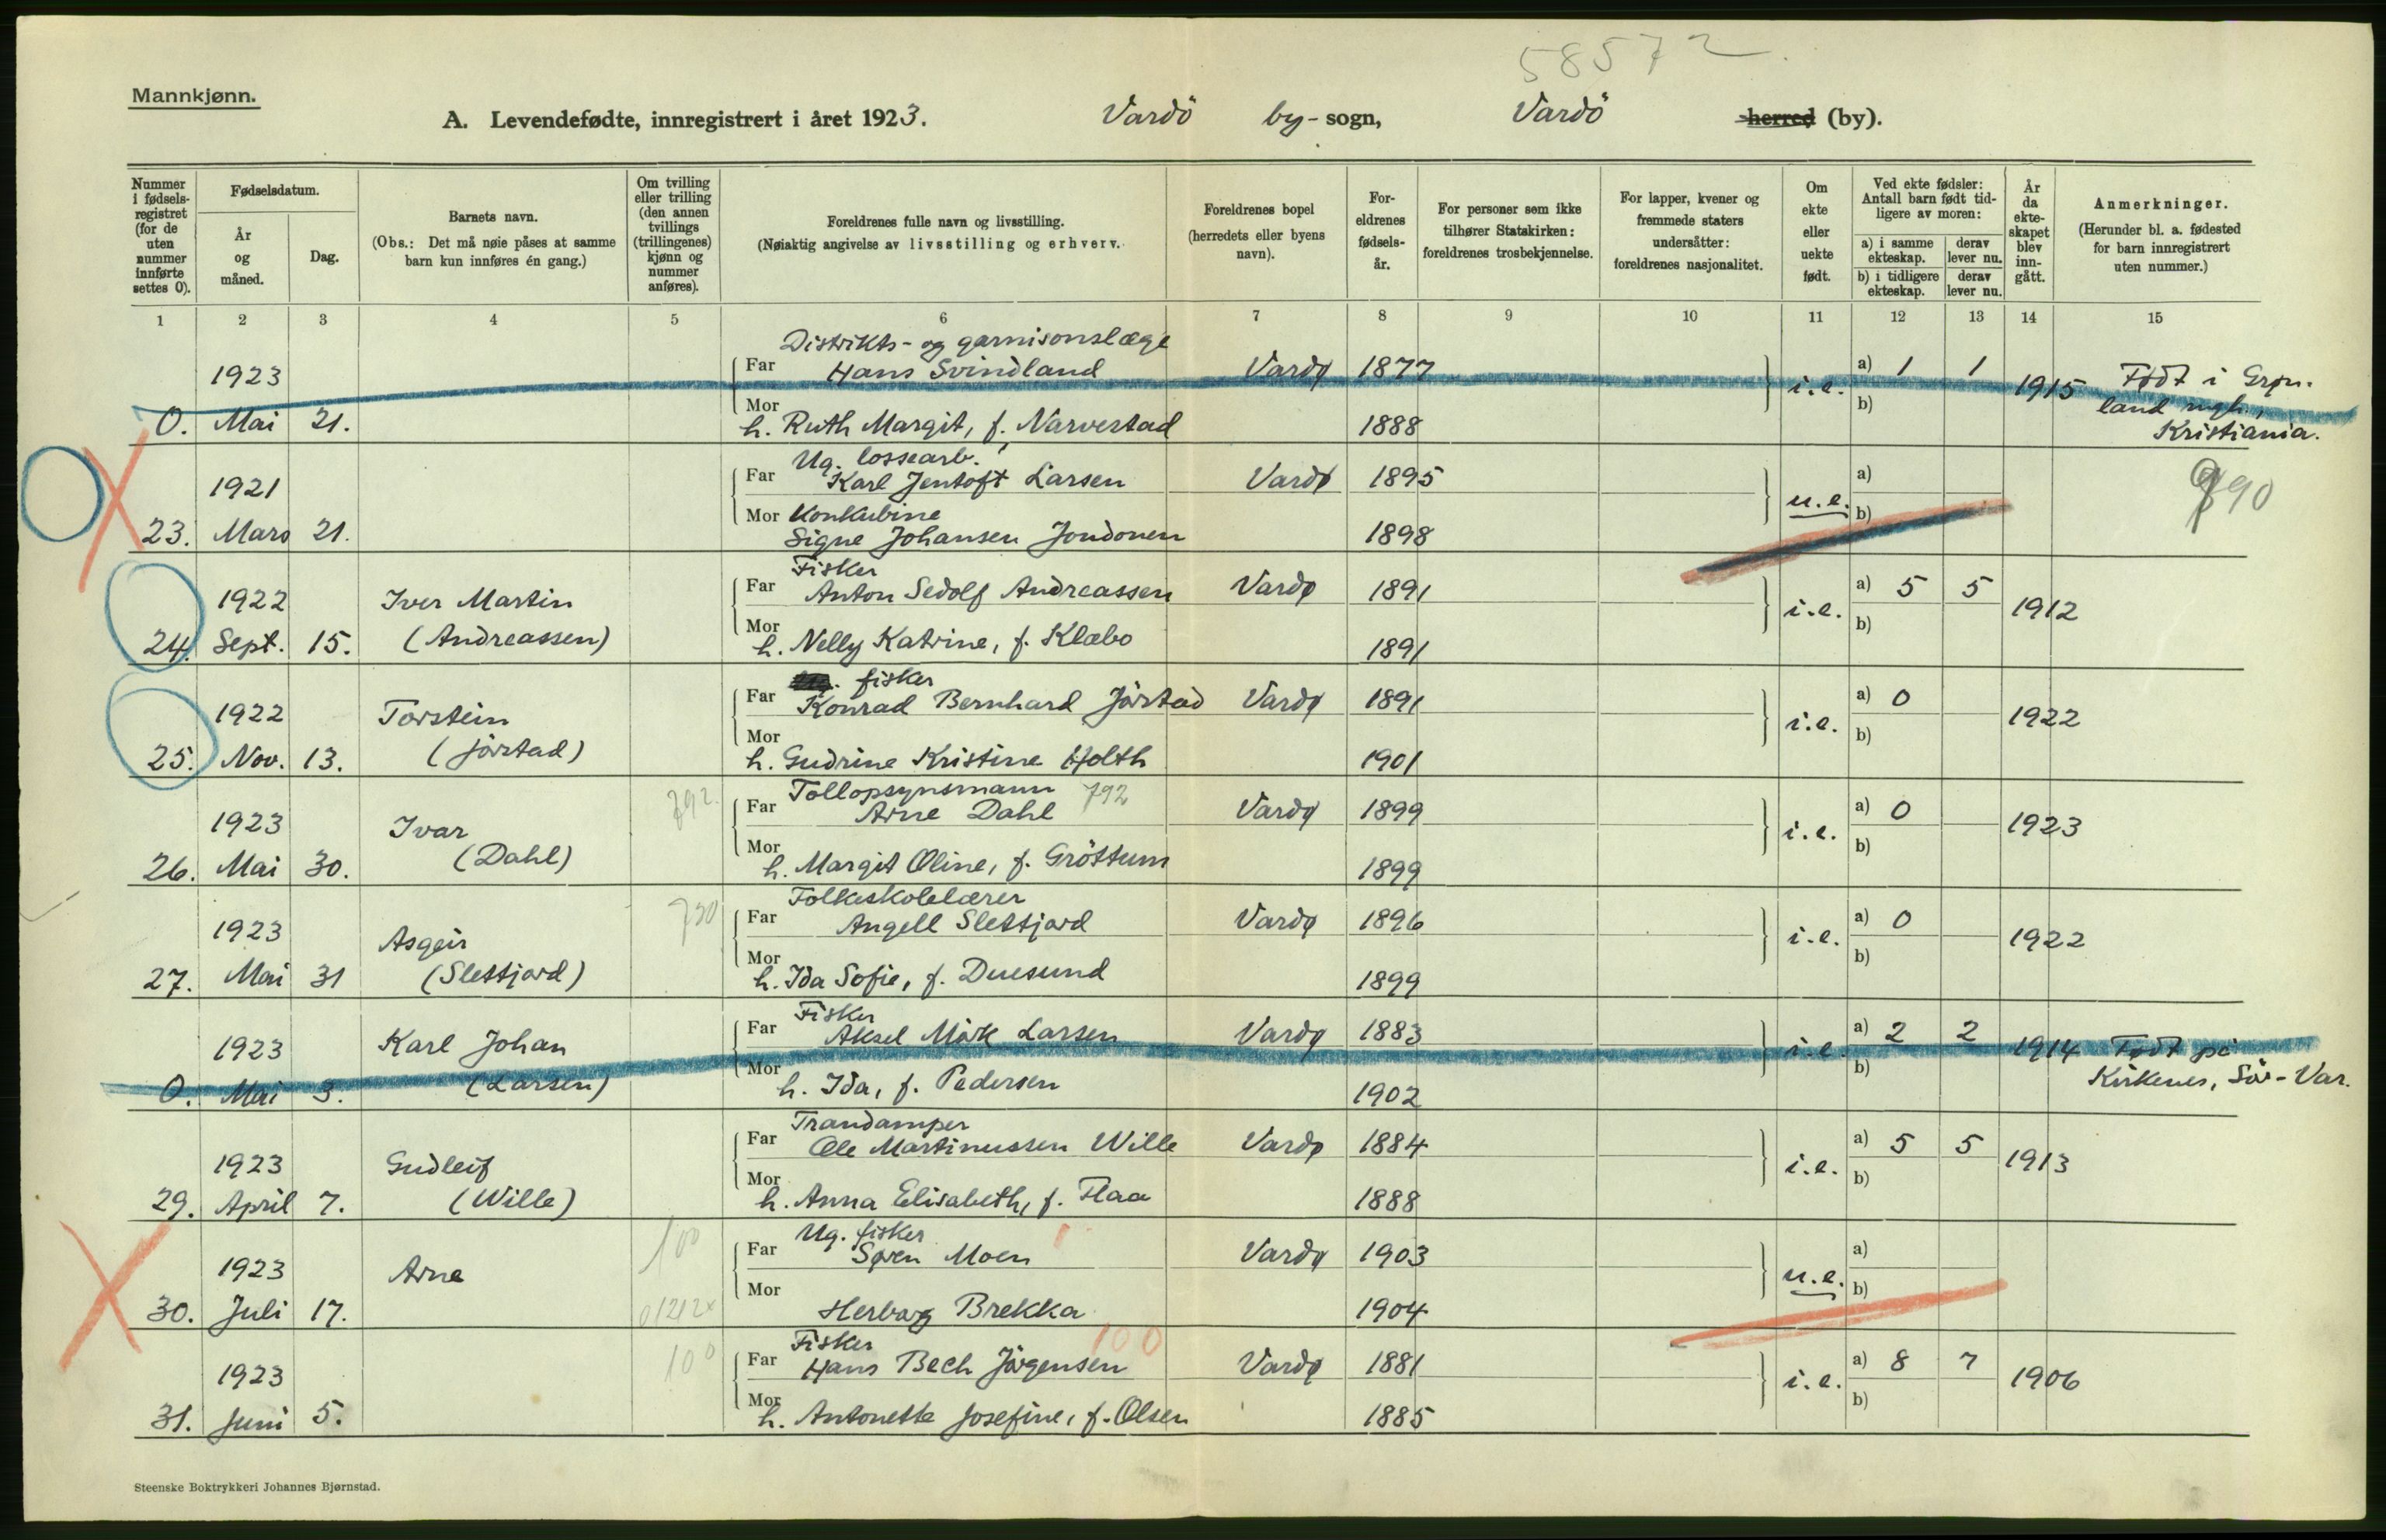 58572
Mannkjønn.
A. Levendefødte, innregistrert i året 1923. Vardö by-sogn, Vardö herred (by).
Nummer i fødsels-registret (for de uten nummer innførte settes 0).
Fødselsdatum.
År og måned.
Dag.
Barnets navn.
(Obs.: Det må nøie påses at samme barn kun innføres én gang.)
Om tvilling eller trilling (den annen tvillings (trillingenes) kjønn og nummer anføres).
Foreldrenes fulle navn og livsstilling.
(Nøiaktig angivelse av livsstilling og erhverv.
Foreldrenes bopel (herredets eller byens navn).
For-eldrenes fødsels-år.
For personer som ikke tilhører Statskirken: foreldrenes trosbekjennelse.
For lapper, kvener og fremmede staters undersåtter: foreldrenes nasjonalitet.
Om ekte eller uekte født.
Ved ekte fødsler: Antall barn født tid-ligere av moren:
a) i samme ekteskap.
derav lever nu.
b) i tidligere ekteskap.
derav lever nu.
År da ekte-skapet blev inn-gått.
Anmerkninger.
(Herunder bl. a. fødested for barn innregistrert uten nummer.)
1 2 3 4 5 6 7 8 9 10 11 12 13 14 15
Distrikts- og garnisonslæge
1923 Far Hans Svindland Vardø 1877 i.e. a) 1 1 1915 Født i Grøn-
0. Mai 21. Mor h. Ruth Margit, f. Narvestad 1888 b) land mgh.,
Kristiania.
Ug. lossearb.
1921 Far Karl Jentoft Larsen Vardø 1895 u.e. a) 990
23. Mars 21. Mor Konkubine b)
Signe Johansen Jondonen 1898
Fisker
1922 Iver Martin Far Anton Sedolf Andreassen Vardø 1891 i.e. a) 5 5 1912
24. Sept. 15. (Andreassen) Mor h. Nelly Katrine, f. Klæbo 1891 b)
fisker
1922 Torstein Far Konrad Bernhard Jørstad Vardø 1891 i.e. a) 0 1922
25. Nov. 13. (Jørstad) Mor h. Gudrine Kristine Holth 1901 b)
792. Tollopsynsmann 792
1923 Ivar Far Arne Dahl Vardø 1899 i.e. a) 0 1923
26. Mai 30. (Dahl) Mor h. Margit Oline, f. Gröttum 1899 b)
730 Folkeskolelærer
1923 Asgeir Far Angell Slettjord Vardø 1896 i.e. a) 0 1922
27. Mai 31 (Slettjord) Mor h. Ida Sofie, f. Duesund 1899 b)
Fisker
1923 Karl Johan Far Aksel Mørk Larsen Vardø 1883 i.e. a) 2 2 1914 Født på
0. Mai 3. (Larsen) Mor h. Ida, f. Pedersen 1902 b) Kirkenes, Sör-Var.
Trandamper
1923 Gudleif Far Ole Martinussen Wille Vardø 1884 i.e. a) 5 5 1913
29. April 7. (Wille) Mor h. Anna Elisabeth, f. Flaa 1888 b)
100 Ug. fisker
1923 Arne Far Søren Moen Vardø 1903 u.e. a)
30. Juli 17. 01212x Mor Herborg Brekka 1904 b)
100 Fisker 100
1923 Far Hans Bech Jörgensen Vardø 1881 i.e. a) 8 7 1906
31. Juni 5. Mor h. Antonette Josefine, f. Olsen 1885 b)
Steenske Boktrykkeri Johannes Bjørnstad.